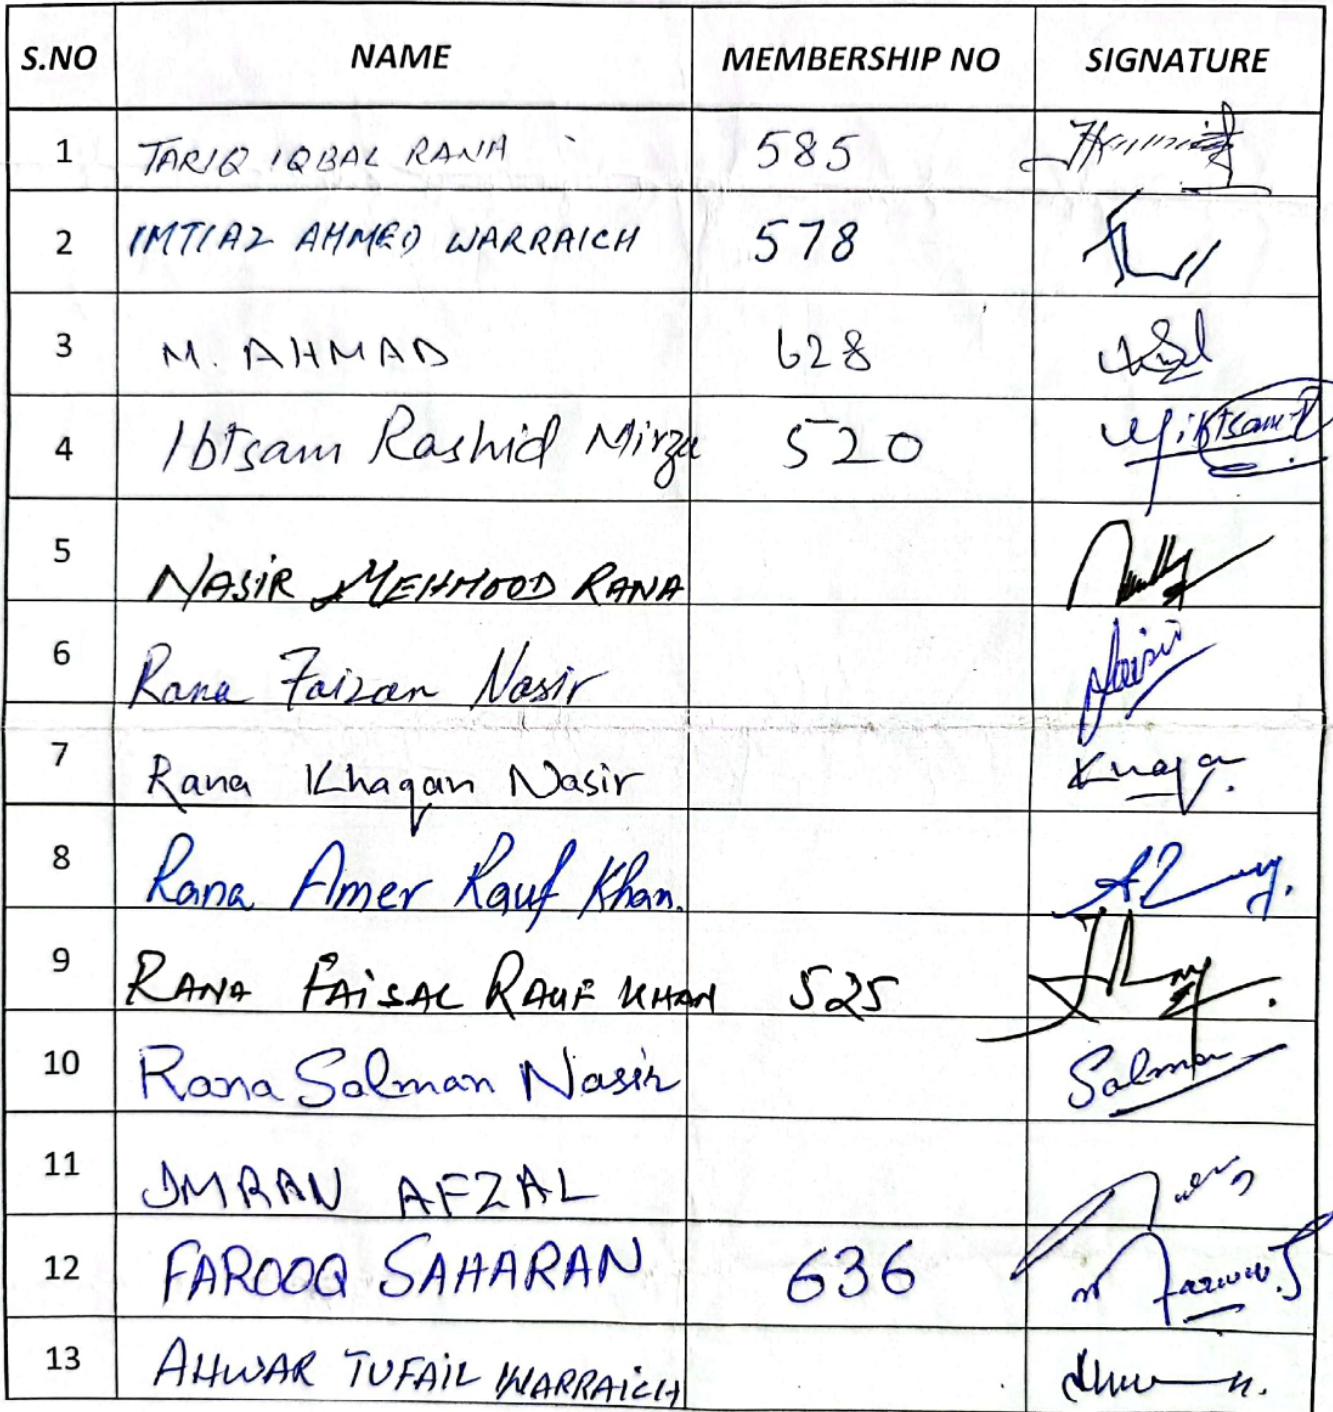 S.NO NAME MEMBERSHIP NO SIGNATURE
1 TARIQ IQBAL RANA 585
2 IMTIAZ AHMED WARRAICH 578
3 M. AHMAD 628
4 Ibtsam Rashid Mirza 520
5 NASIR MEHMOOD RANA
6 Rana Faizan Nasir
7 Rana Khaqan Nasir
8 Rana Amer Rauf Khan.
9 RANA FAISAL RAUF KHAN 525
10 Rana Salman Nasir Salman
11 IMRAN AFZAL
12 FAROOQ SAHARAN 636
13 AHWAR TUFAIL WARRAICH